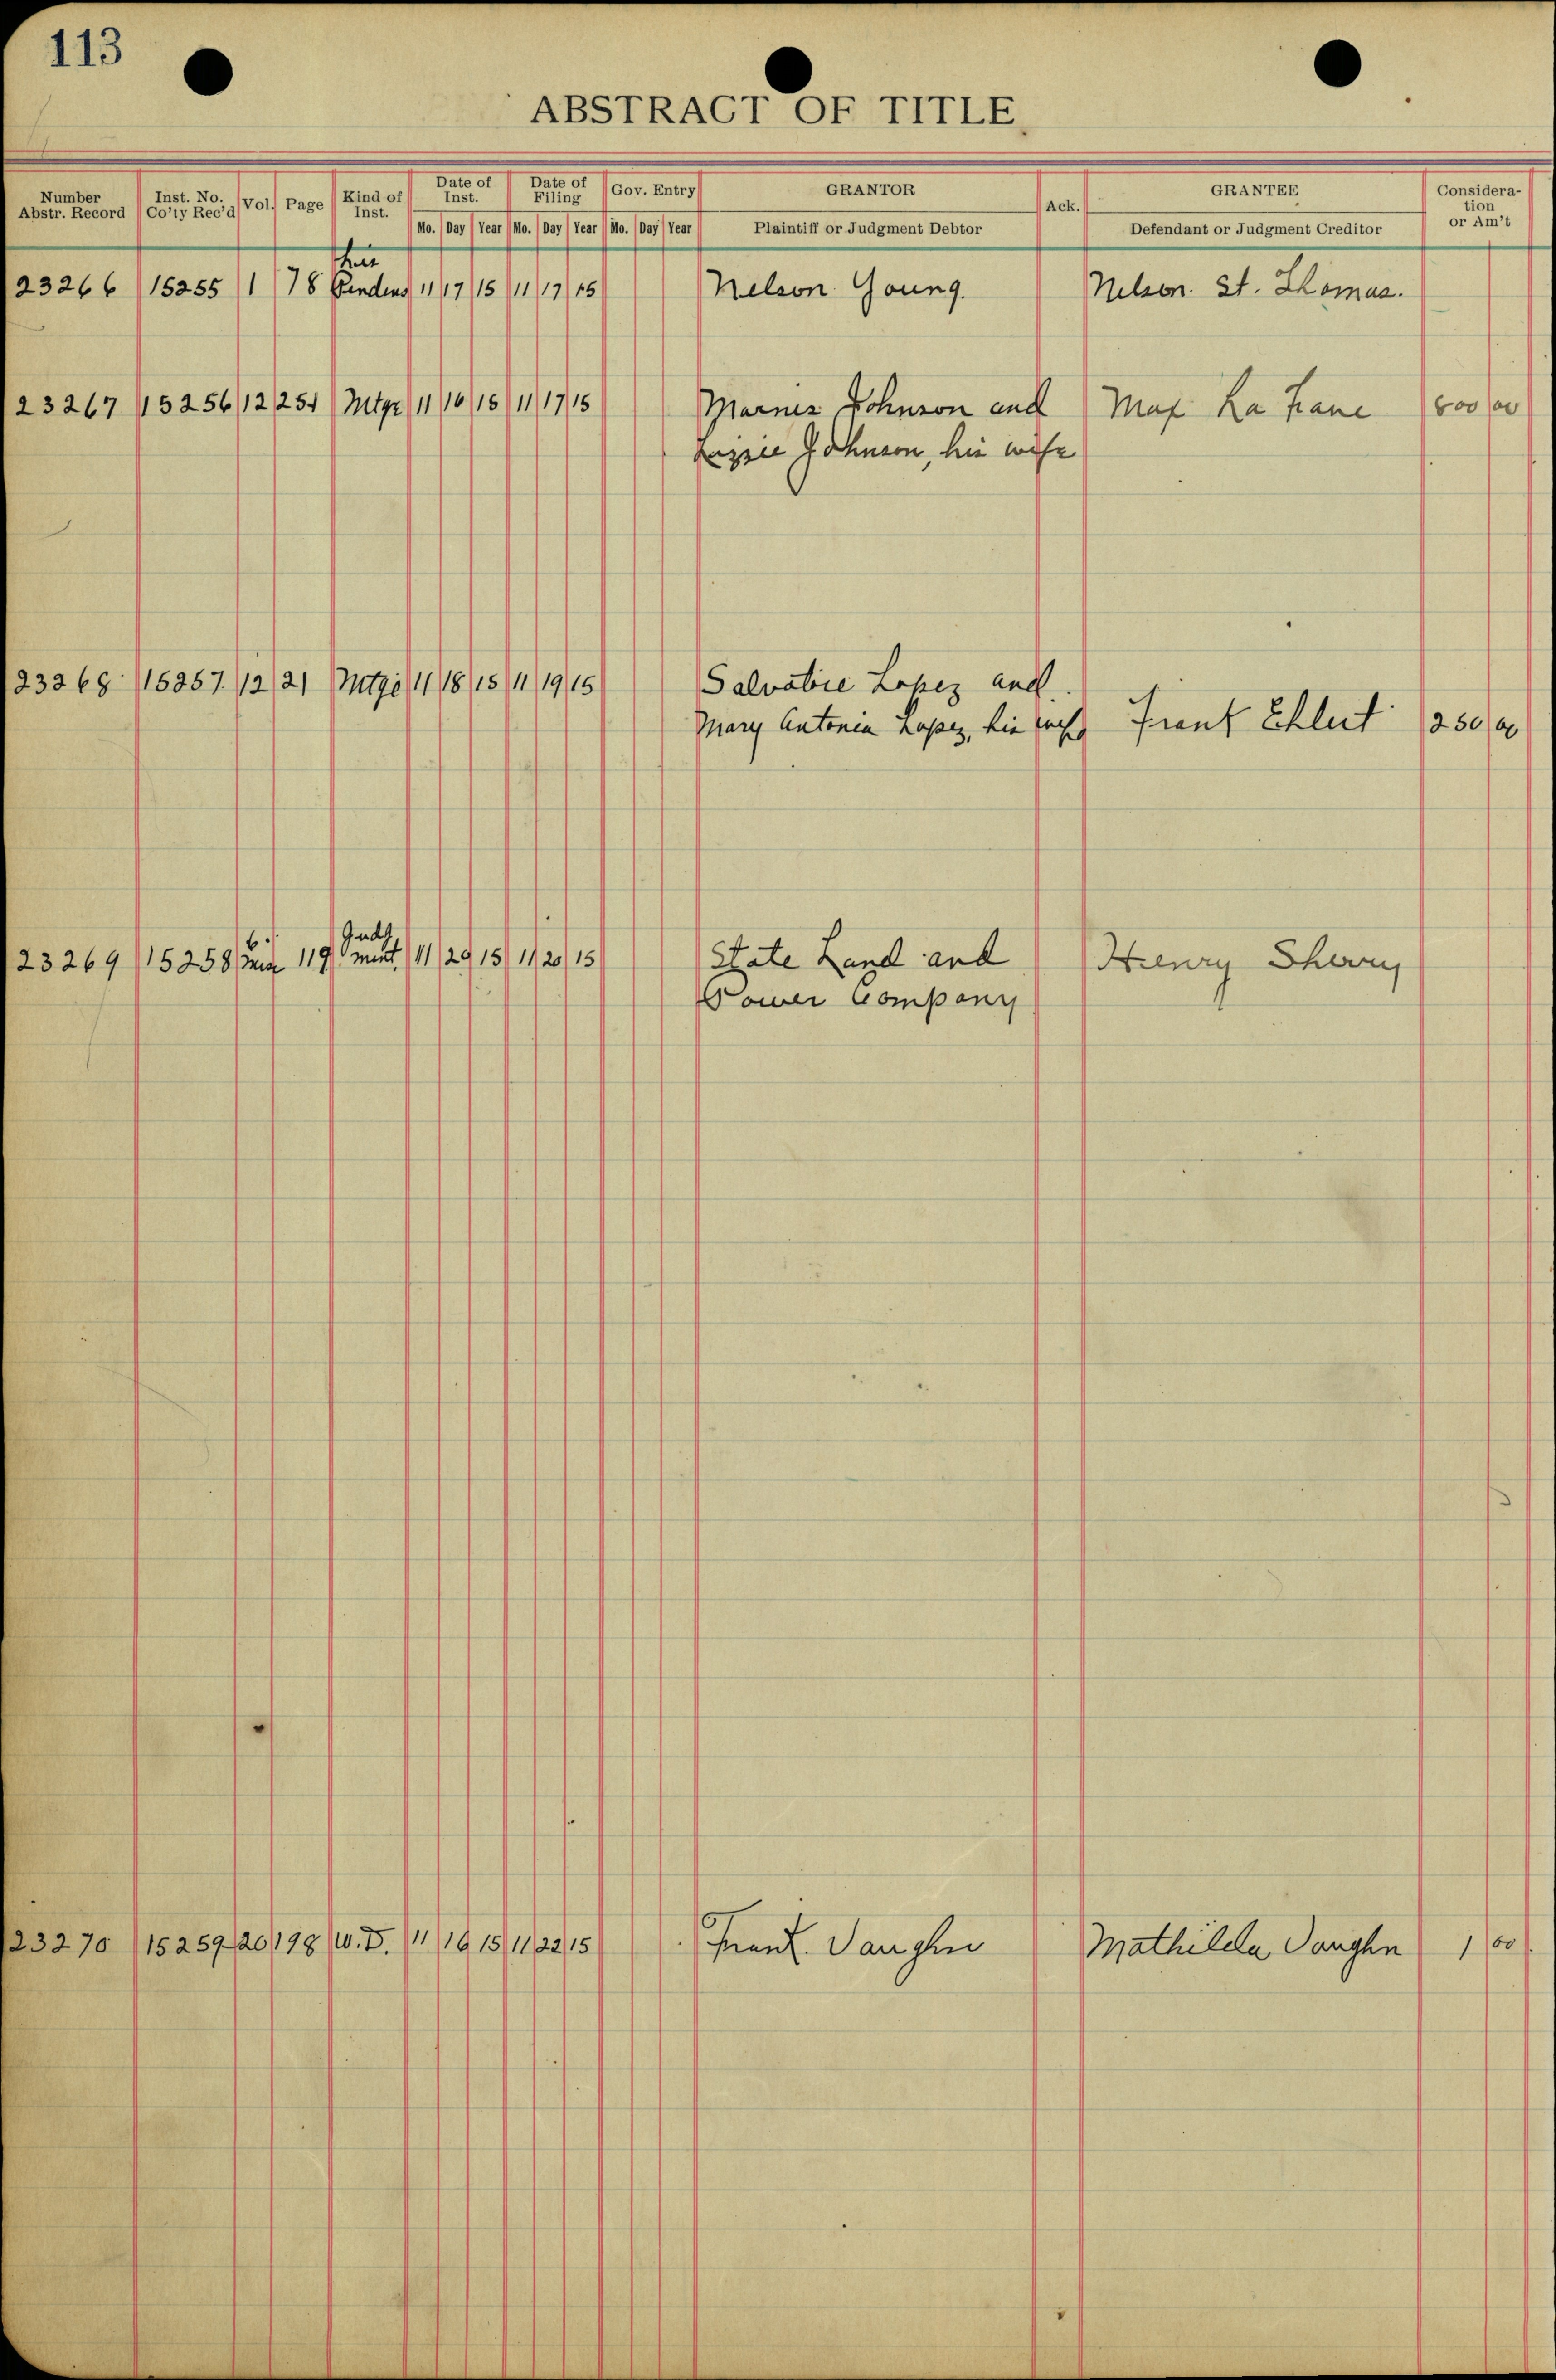 113
ABSTRACT OF TITLE
Number Abstr. Record | Inst. No. Co'ty Rec'd | Vol. | Page | Kind of Inst. | Date of Inst. | Date of Filing | Gov. Entry | GRANTOR | Ack. | GRANTEE | Consideration or Am't
Mo. Day Year Mo. Day Year Mo. Day Year Plaintiff or Judgment Debtor Defendant or Judgment Creditor
23266 15255 1 78 Pendens 11 17 15 11 17 15 Nelson Young. Nelson St. Thomas.
23267 15256 12 251 Mtge 11 16 15 11 17 15 Johnson and Max La France 600 00
Lizzie Johnson, his wife
23268 15257 12 21 Mtge 11 18 15 11 19 15 Salvatore Lopez and
Mary Antonia Lopez, his wife Frank Ehlert 250 00
Judg
23269 15258 6 Mis 119 ment. 11 20 15 11 20 15 State Land and Henry Sherry
Power Company
23270 15259 20 198 W.D. 11 16 15 11 22 15 Frank Vaughn Mathilda Vaughn 1 00